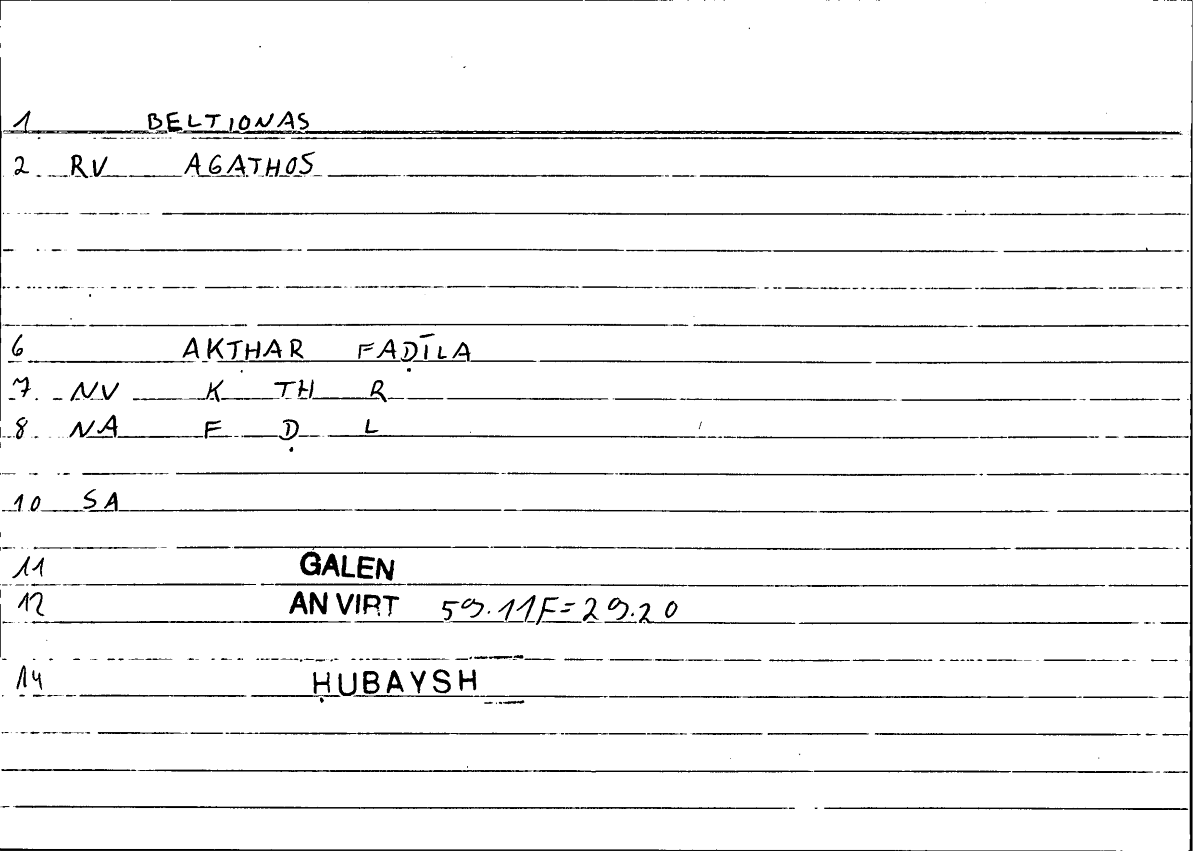 1 BELTIONAS
2 RV AGATHOS
6 AKTHAR FAḌĪLA
7 NV K TH R
8 NA F Ḍ L
10 SA
11 GALEN
12 AN VIRT 59.11F=29.20
14 ḤUBAYSH